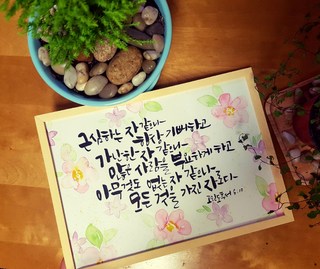 근심하는 자 같으나
항상 기뻐하고
가난한 자 같으나
많은 사람을 부요하게 하고
아무것도 없는 자 같으나
모든 것을 가진 자로다
고린도후서 6:10